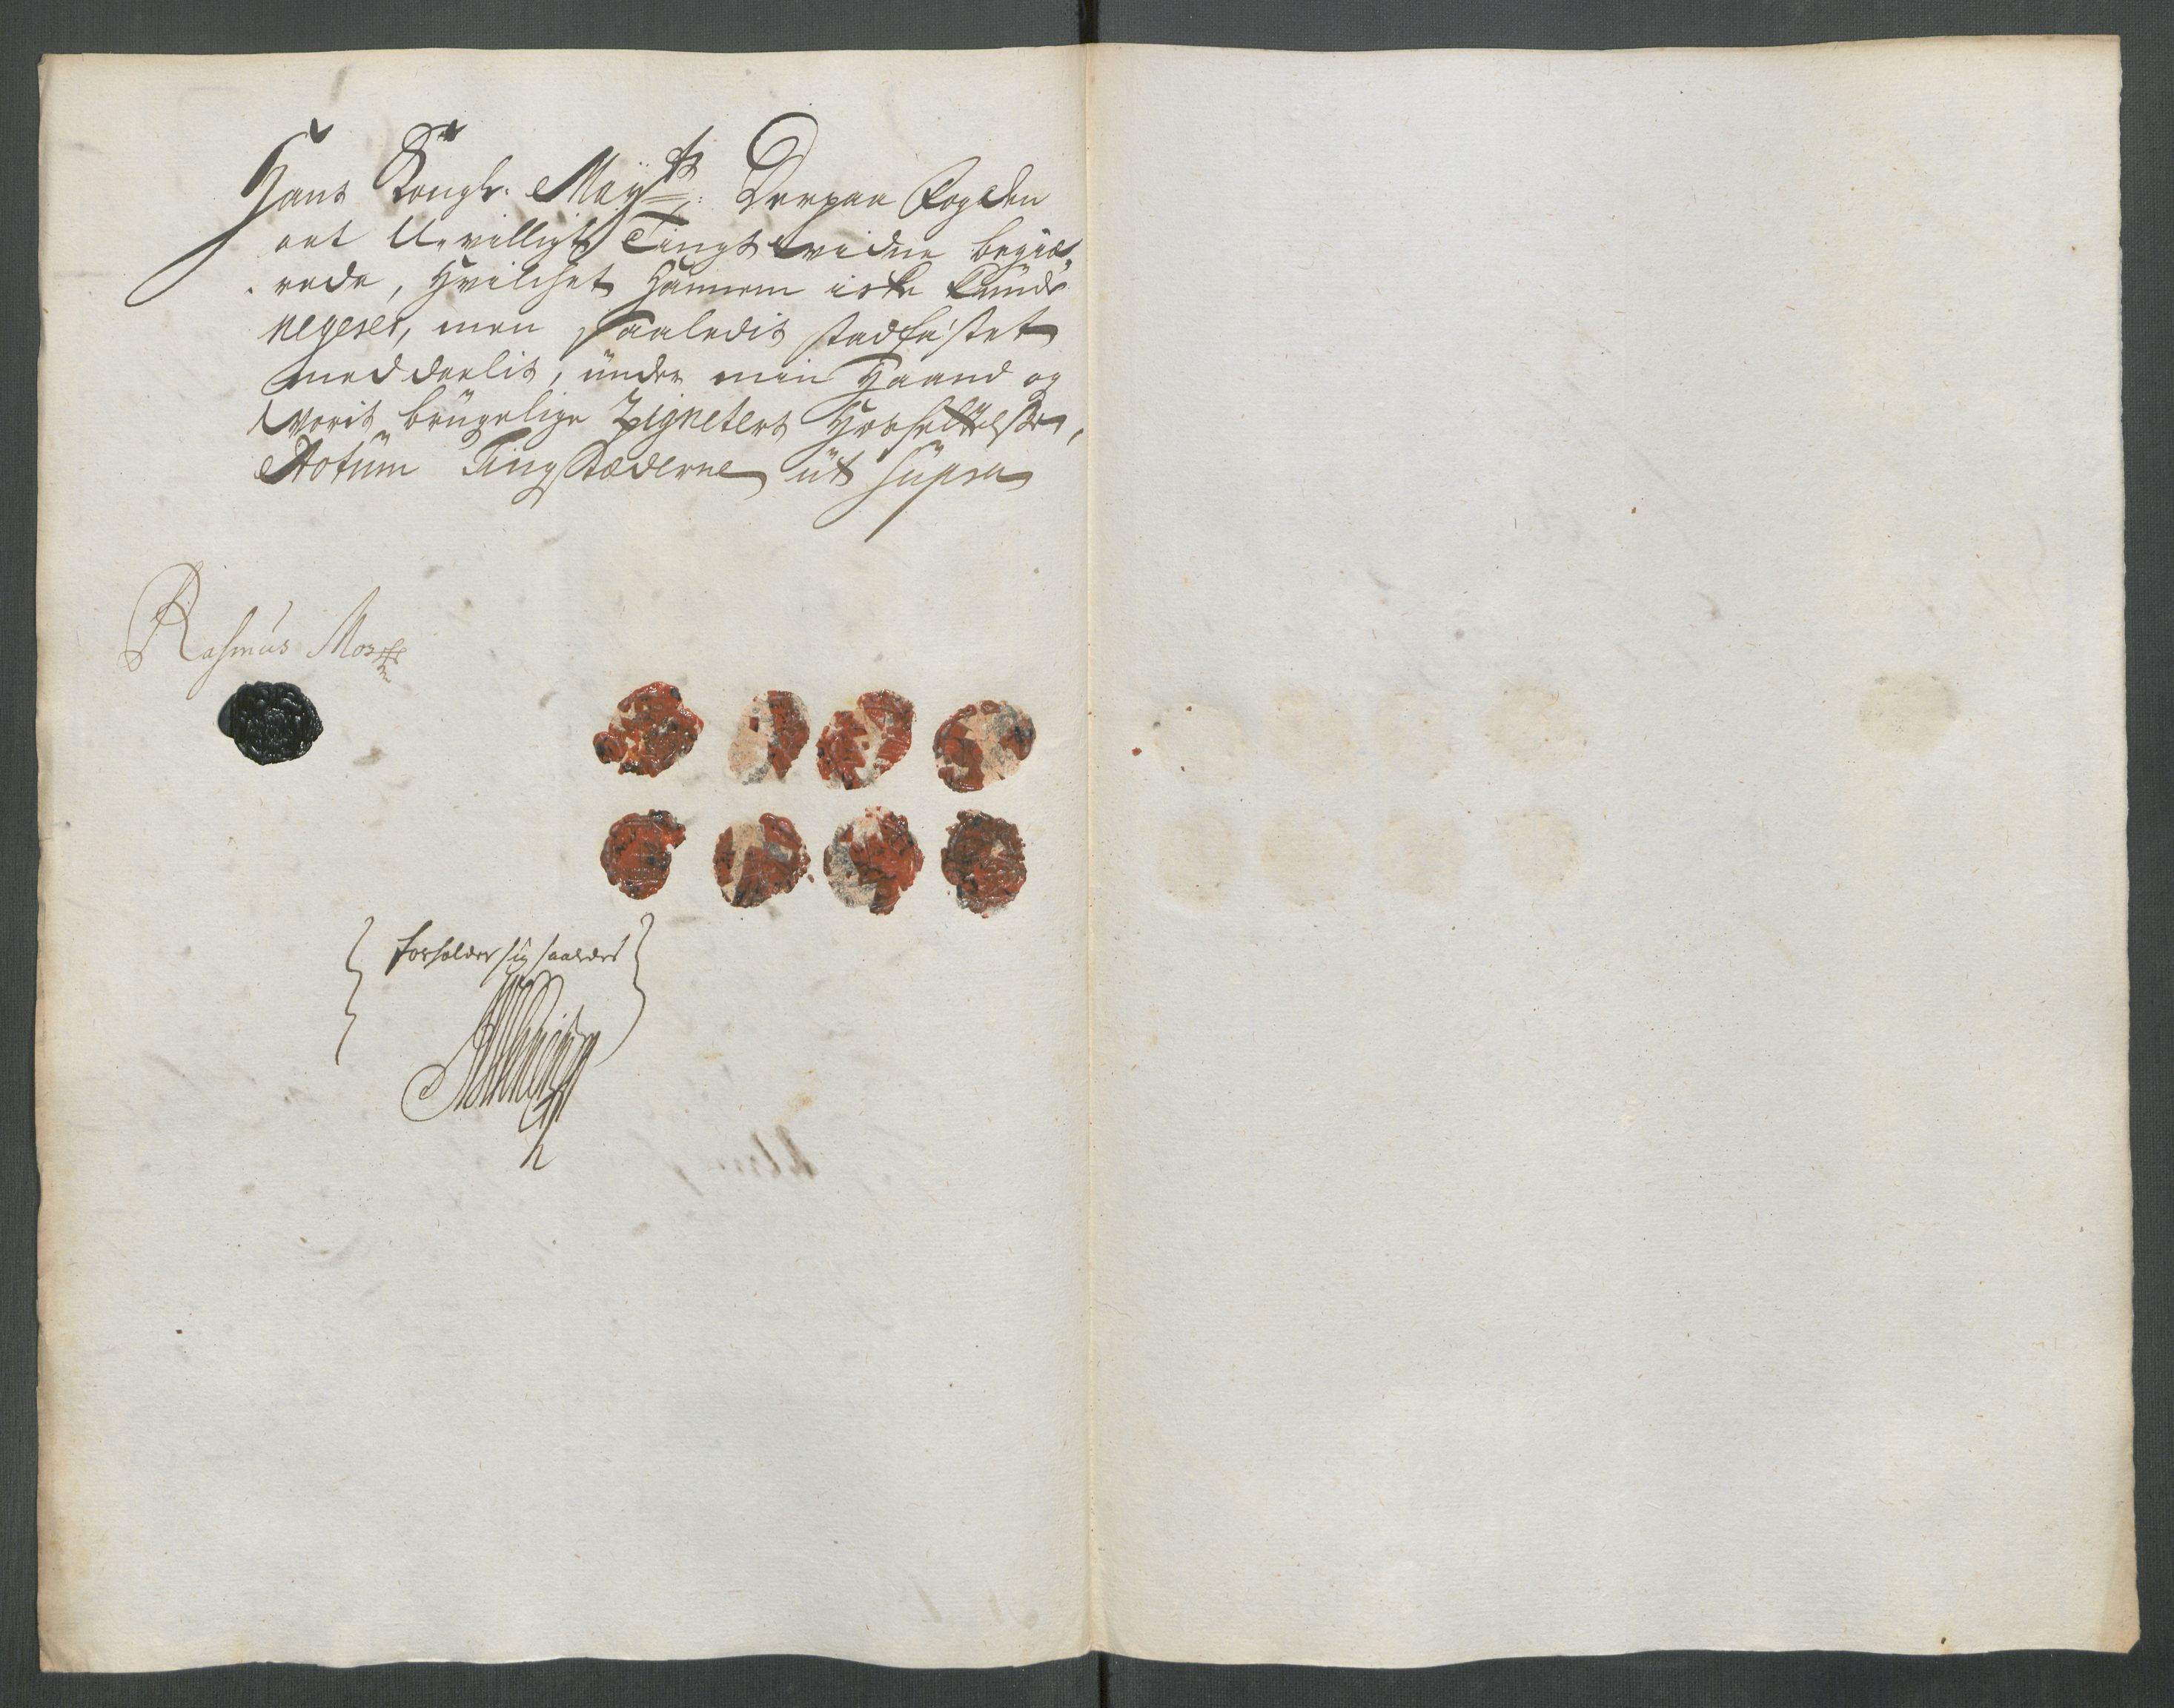 Hans Kongl. Mayts: Derpaa Fogden
eet U-villigt Tingsvidne begiæ-
rede, Hvilchet hannem icke kunde
negeres, men saaledis stadfæstet
meddeelis, under min Haand og
Voris brugelige Zigneters Hosfættelse,
Actum Tingstæderne ut supra
Rasmus
forholder sig saaledes